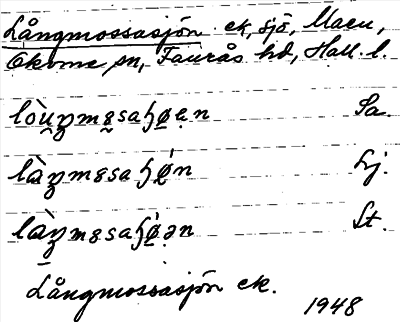 Långmossasjön ek, sjö, Maeu,
Okome sn, Faurås hd, Hall. l.
lòu̯ŋmɞsaɧø̯ən Sa.
là̯ŋmɞsaɧǿ̯n Lj.
là̯ŋmɞsaɧǿ̯ən St.
Långmossasjön ek.
1948